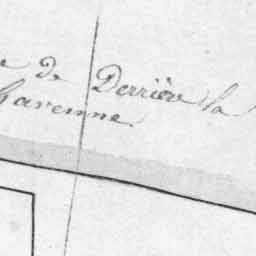 e de Derrière la
Garenne.